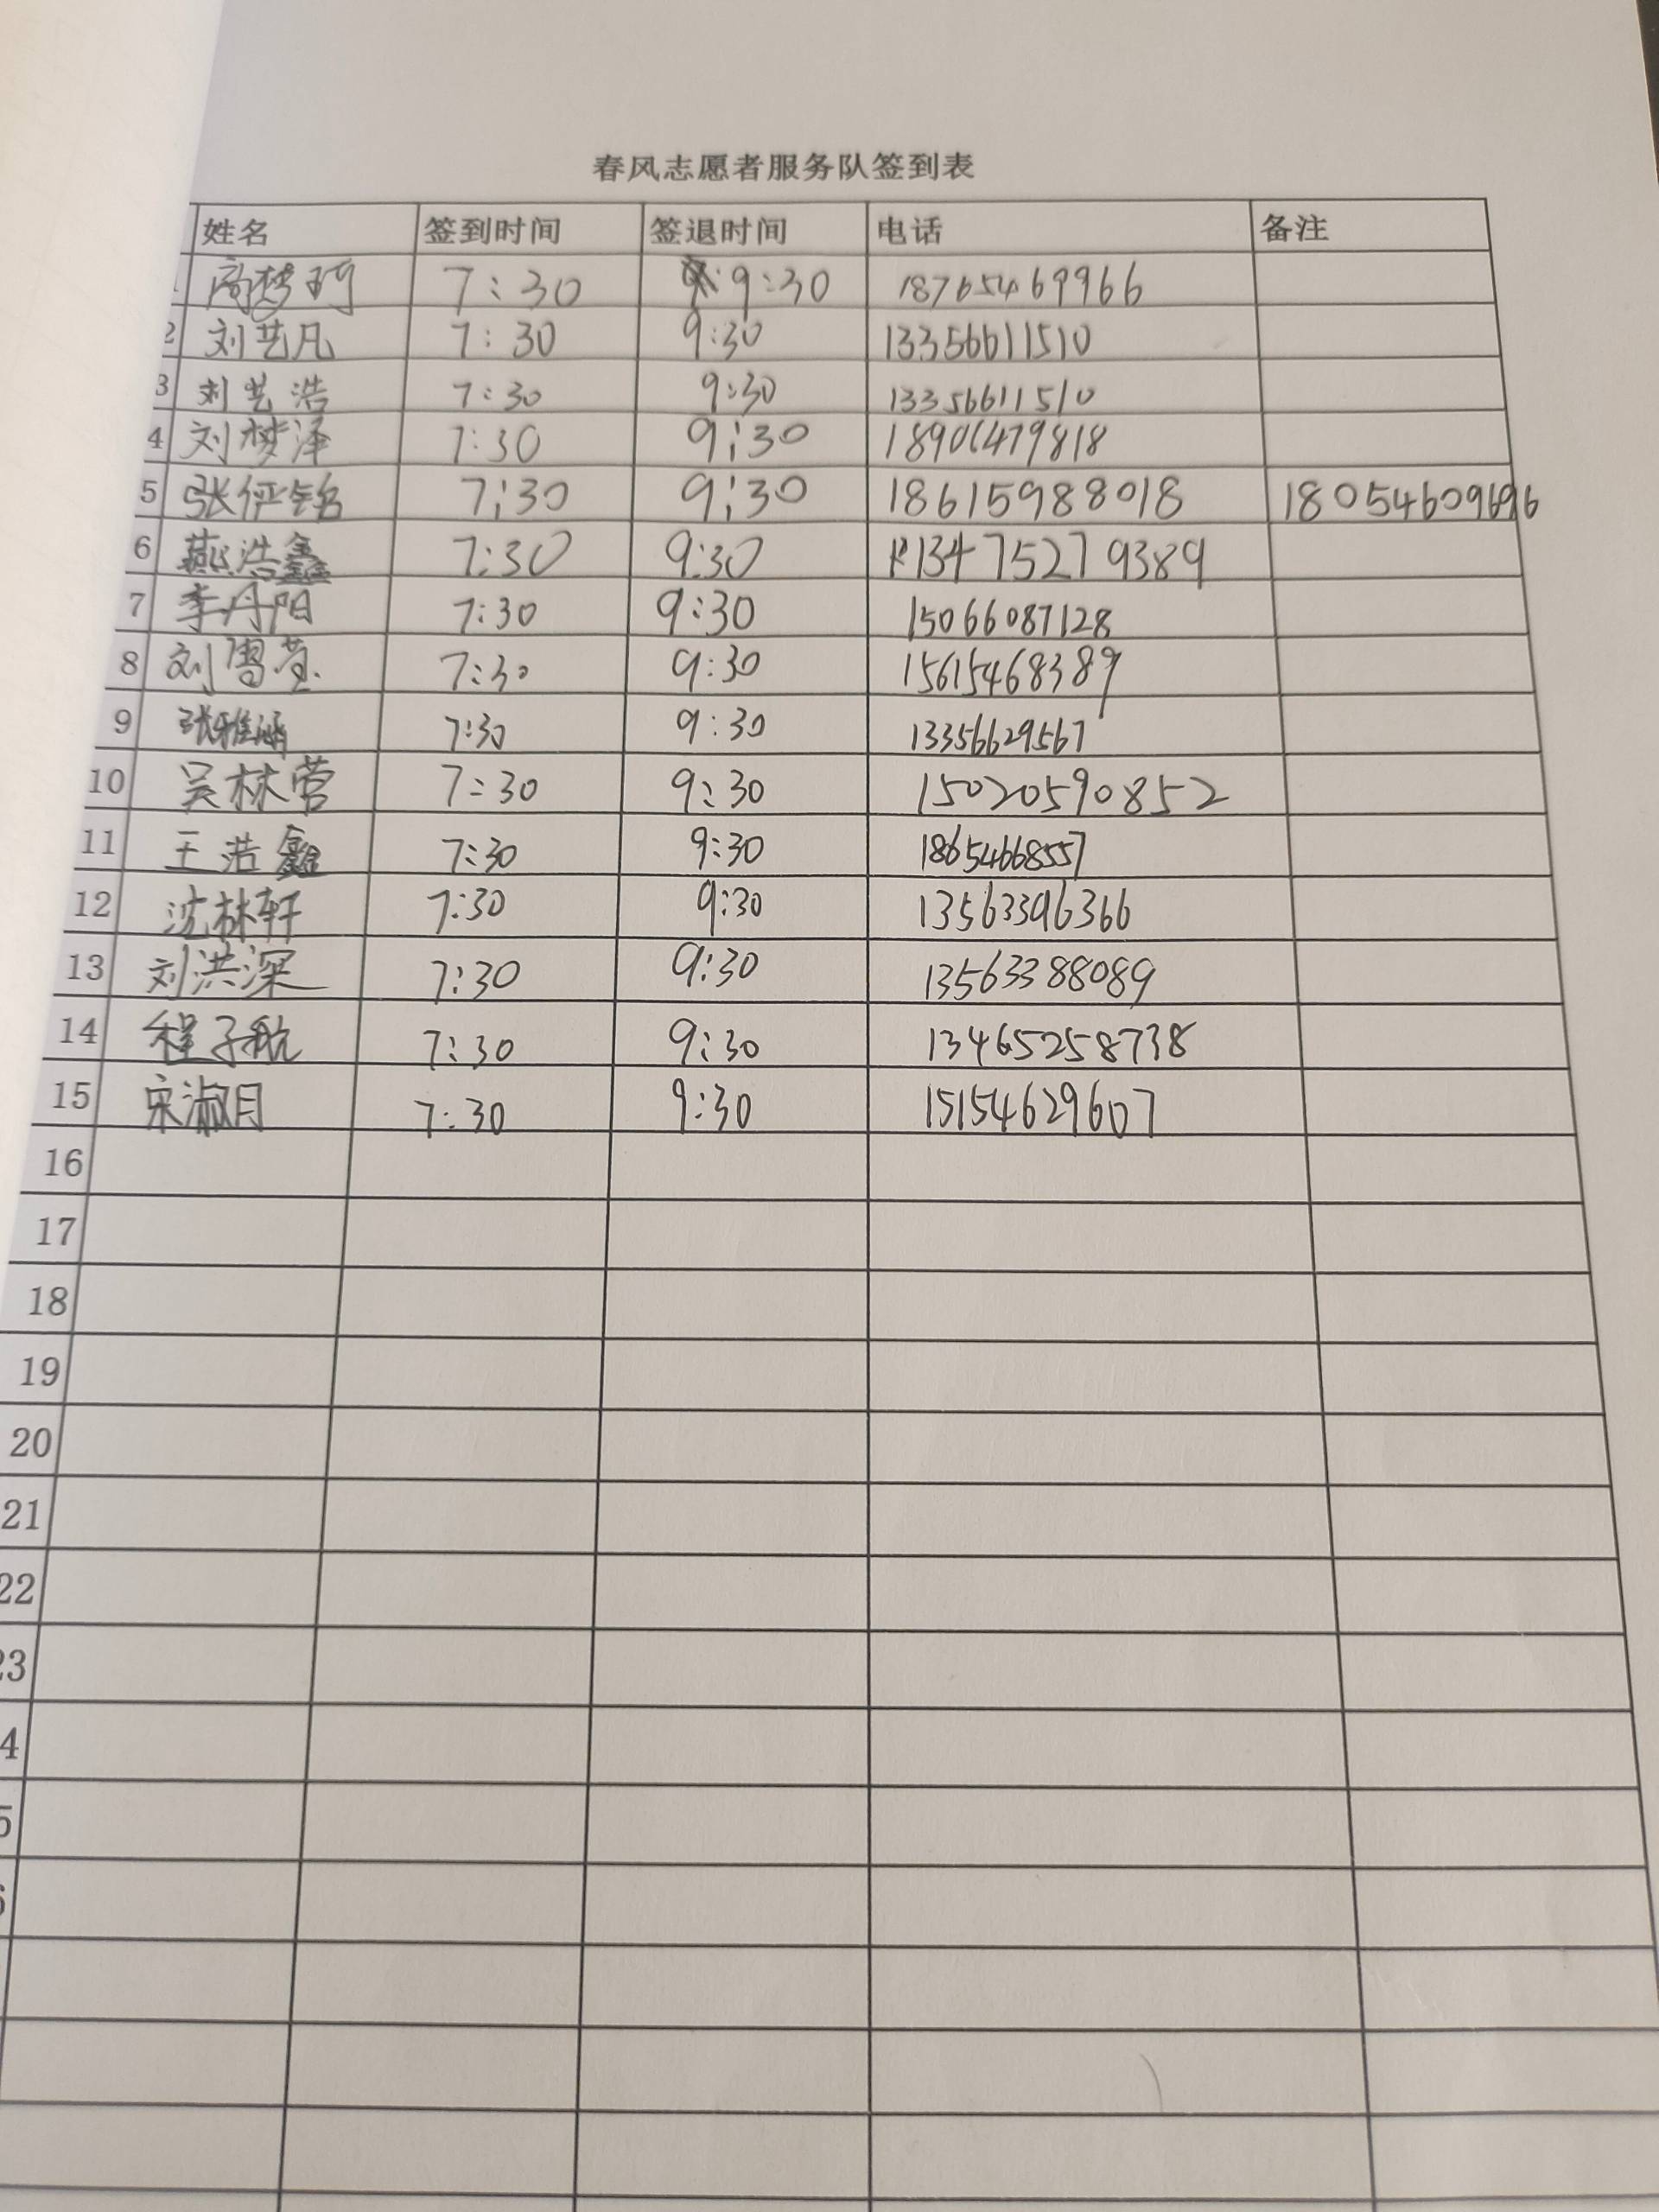 春风志愿者服务队签到表
姓名 签到时间 签退时间 电话 备注
1 高梦珂 7:30 9:30 18765469966
2 刘艺凡 7:30 9:30 13356611510
3 刘艺浩 7:30 9:30 13356611510
4 刘梦泽 7:30 9:30 18906479818
5 张俨铭 7:30 9:30 18615988018 18054609696
6 燕浩鑫 7:30 9:30 13475279389
7 李丹阳 7:30 9:30 15066087128
8 刘雪莹 7:30 9:30 15615468389
9 张雅涵 7:30 9:30 13356629567
10 吴林营 7:30 9:30 15020590852
11 王浩鑫 7:30 9:30 18654668557
12 沈林轩 7:30 9:30 13563396366
13 刘洪深 7:30 9:30 13563388089
14 程子航 7:30 9:30 13465258738
15 宋淑月 7:30 9:30 15154629607
16
17
18
19
20
21
22
23
4
5
6